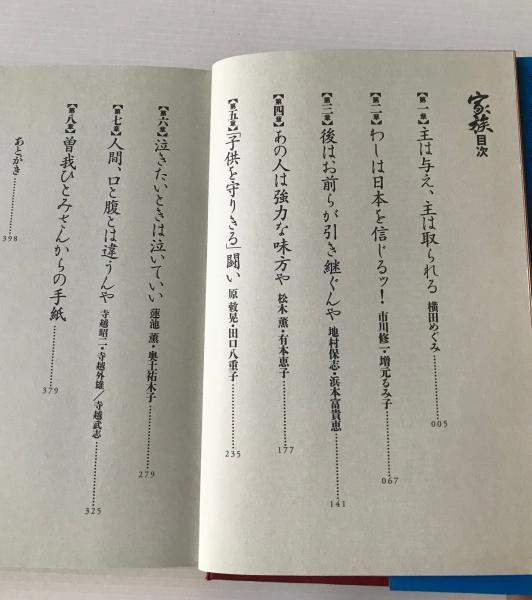 家族 目次
【第一章】主は与え、主は取られる 横田めぐみ……005
【第二章】わしは日本を信じるッ! 市川修一・増元るみ子……067
【第三章】後はお前らが引き継ぐんや 地村保志・浜本富貴恵……141
【第四章】あの人は強力な味方や 松木 薫・有本恵子……177
【第五章】「子供を守りきる」闘い 原 敕晃・田口八重子……235
【第六章】泣きたいときは泣いていい 蓮池 薫・奥土祐木子……279
【第七章】人間、口と腹とは違うんや 寺越昭二・寺越外雄/寺越武志……325
【第八章】曽我ひとみさんからの手紙……379
あとがき……398